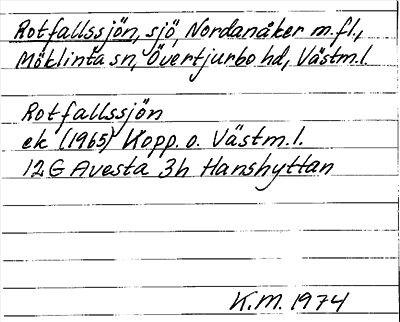 Rotfallssjön, sjö, Nordanåker m.fl.,
Möklinta sn, Övertjurbo hd, Västm.l.
Rotfallssjön
ek (1965) Kopp. o. Västm.l.
12 G Avesta 3h Hanshyttan
K.M. 1974